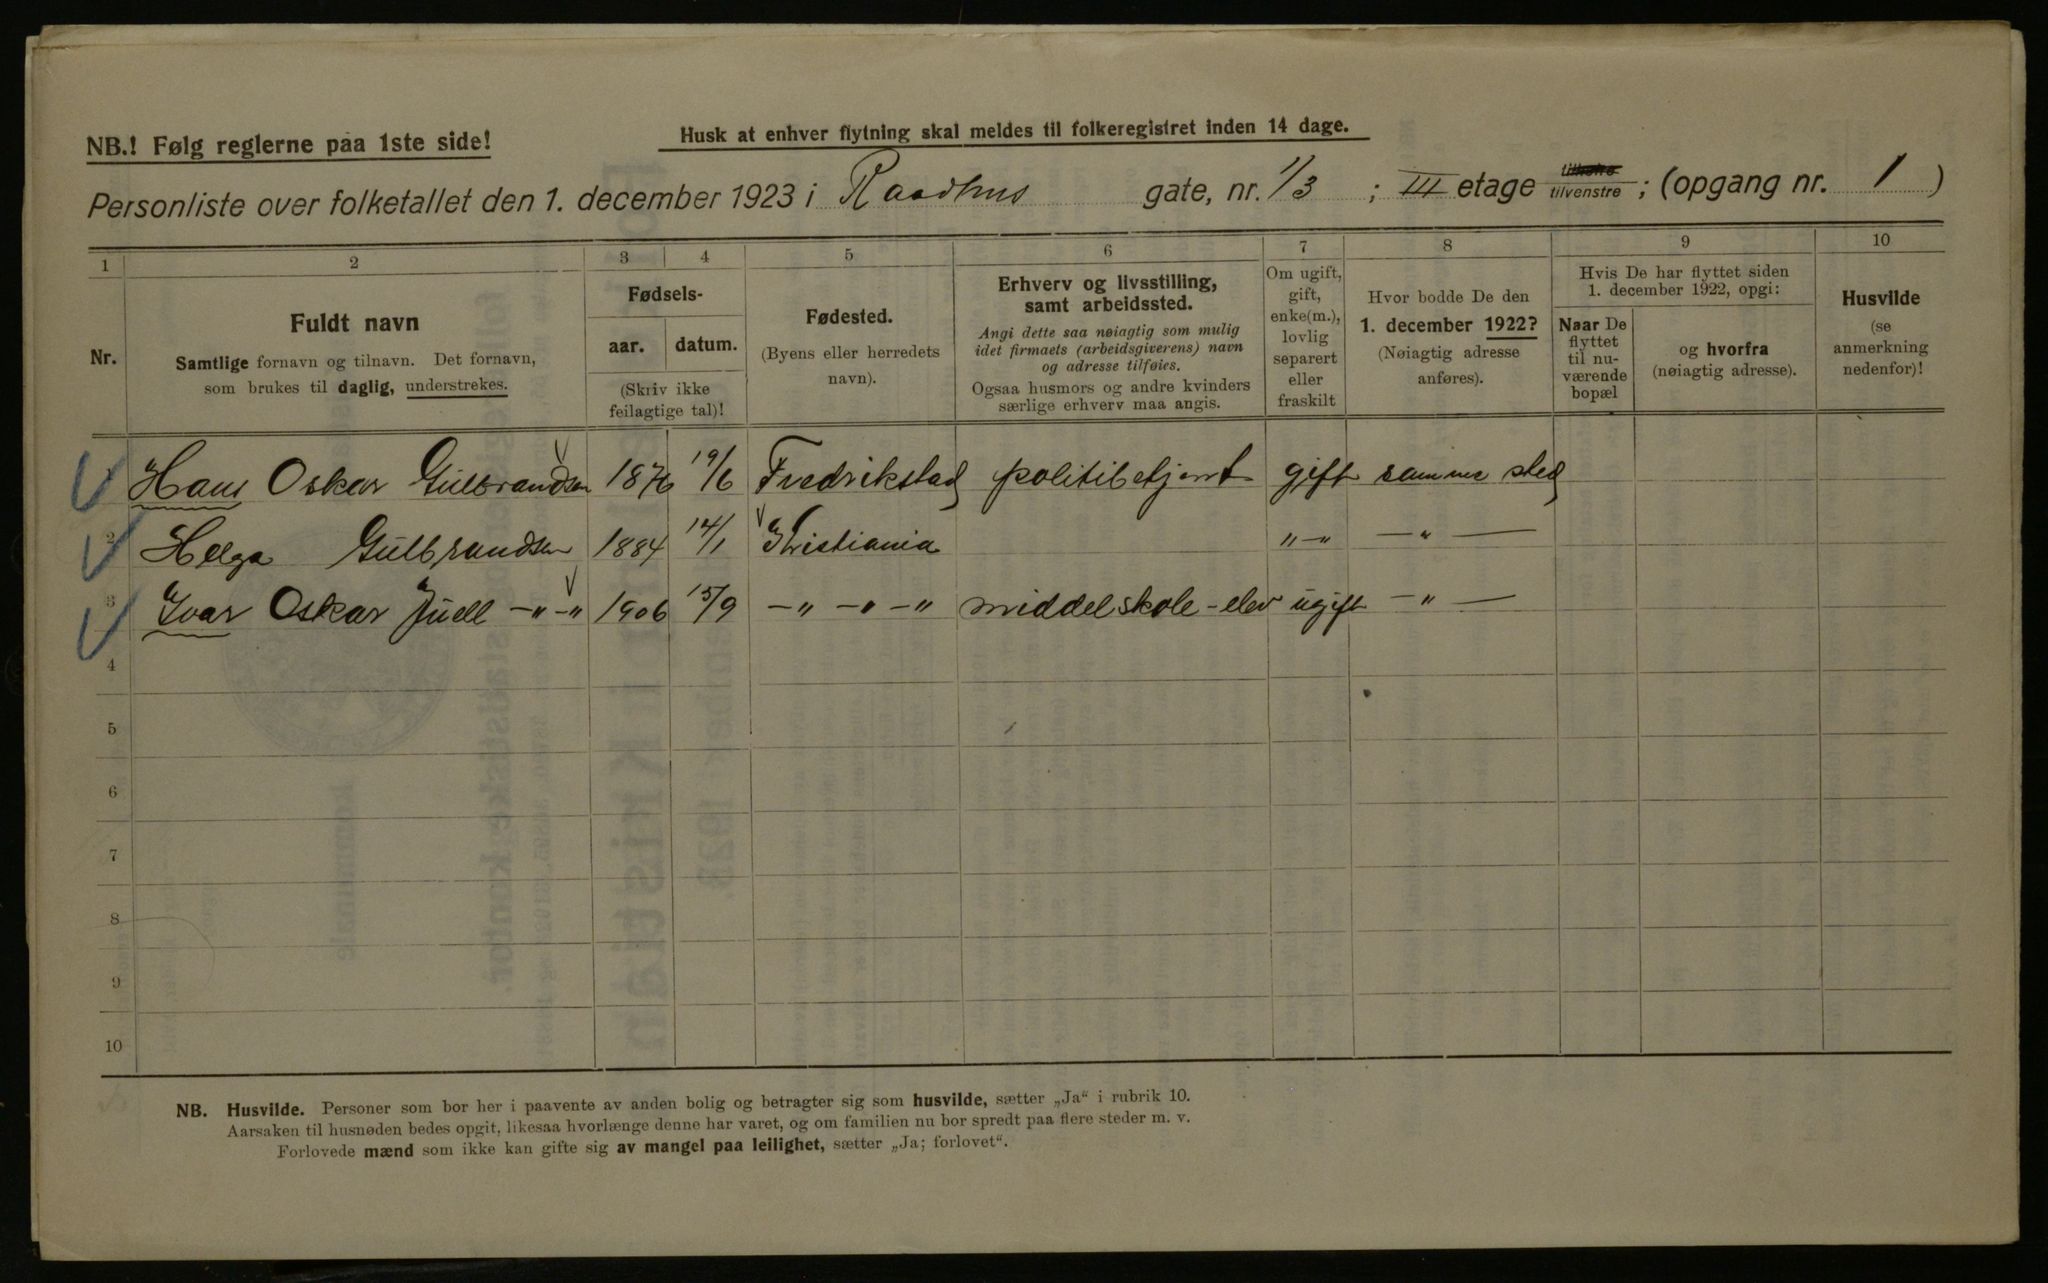 NB.! Følg reglerne paa 1ste side!
Husk at enhver flytning skal meldes til folkeregistret inden 14 dage.
Personliste over folketallet den 1. december 1923 i Raadhus gate, nr. 1/3 ; III etage tilvenstre ; (opgang nr. 1 )
1 2 3 4 5 6 7 8 9 10
Nr.
Fuldt navn
Samtlige fornavn og tilnavn. Det fornavn,
som brukes til daglig, understrekes.
Fødsels-
aar. datum.
(Skriv ikke
feilagtige tal)!
Fødested.
(Byens eller herredets
navn).
Erhverv og livsstilling,
samt arbeidssted.
Angi dette saa nøiagtig som mulig
idet firmaets (arbeidsgiverens) navn
og adresse tilføies.
Ogsaa husmors og andre kvinders
særlige erhverv maa angis.
Om ugift,
gift,
enke(m.),
lovlig
separert
eller
fraskilt
Hvor bodde De den
1. december 1922?
(Nøiagtig adresse
anføres).
Hvis De har flyttet siden
1. december 1922, opgi:
Naar De
flyttet
til nu-
værende
bopæl
og hvorfra
(nøiagtig adresse).
Husvilde
(se
anmerkning
nedenfor)!
Hans Oskar Gulbrandsen 1876 19/6 Fredrikstad politibetjent gift samme sted
2 Helga Gulbrandsen 1884 14/1 Kristiania "-" -"-
3 Ivar Oskar Juell -"-" 1906 15/9 -"-"-" middelskole-elev ugift -"-
4
5
6
7
8
9
10
NB. Husvilde. Personer som bor her i paavente av anden bolig og betragter sig som husvilde, sætter „Ja“ i rubrik 10.
Aarsaken til husnøden bedes opgit, likesaa hvorlænge denne har varet, og om familien nu bor spredt paa flere steder m. v.
Forlovede mænd som ikke kan gifte sig av mangel paa leilighet, sætter „Ja; forlovet“.